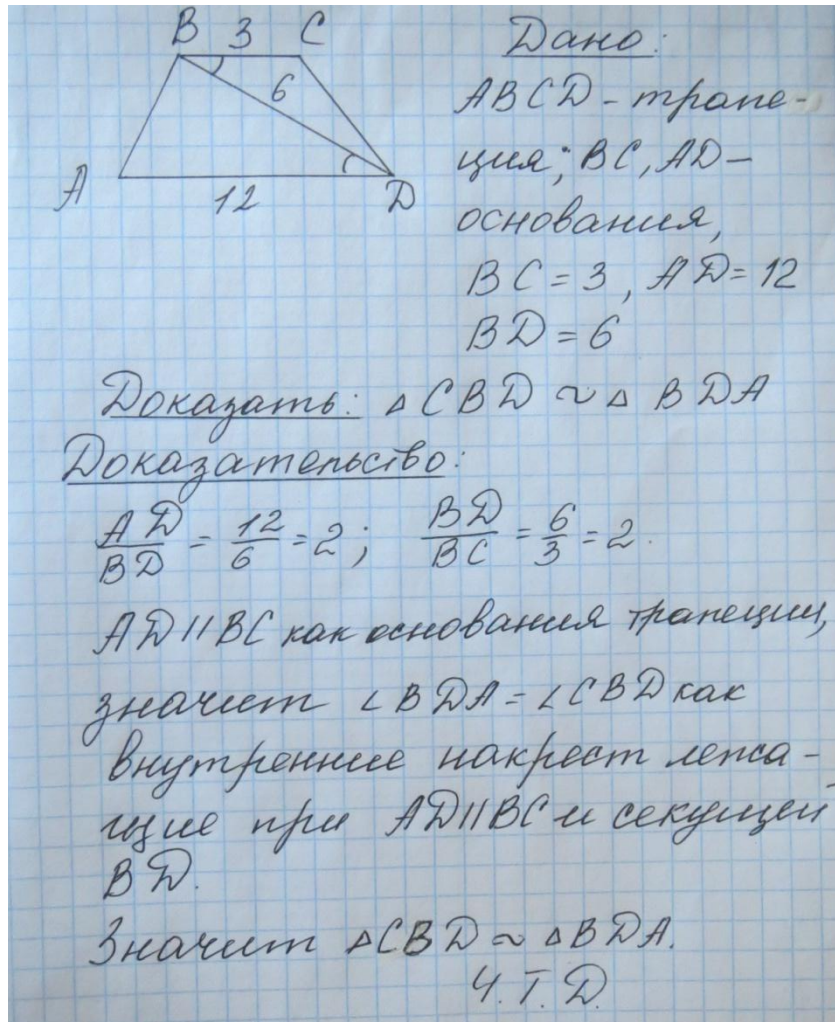 B 3 C
6
A 12 D
Дано:
ABCD - трапе-
ция; BC, AD -
основания,
BC = 3, AD = 12
BD = 6
Доказать: △ CBD ~ △ BDA
Доказательство:
AD/BD = 12/6 = 2; BD/BC = 6/3 = 2.
AD || BC как основания трапеции,
значит ∠BDA = ∠CBD как
внутренние накрест лежа-
щие при AD||BC и секущей
BD.
Значит △CBD ~ △BDA.
Ч.Т.Д.